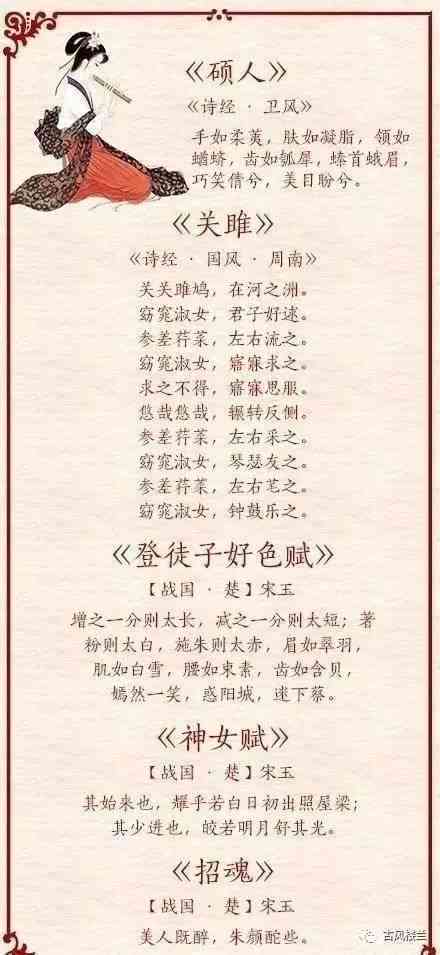 《硕人》
《诗经 · 卫风》
手如柔荑，肤如凝脂，领如
蝤蛴，齿如瓠犀，螓首蛾眉，
巧笑倩兮，美目盼兮。
《关雎》
《诗经 · 国风 · 周南》
关关雎鸠，在河之洲。
窈窕淑女，君子好逑。
参差荇菜，左右流之。
窈窕淑女，寤寐求之。
求之不得，寤寐思服。
悠哉悠哉，辗转反侧。
参差荇菜，左右采之。
窈窕淑女，琴瑟友之。
参差荇菜，左右芼之。
窈窕淑女，钟鼓乐之。
《登徒子好色赋》
【战国 · 楚】宋玉
增之一分则太长，减之一分则太短；著
粉则太白，施朱则太赤，眉如翠羽，
肌如白雪，腰如束素，齿如含贝，
嫣然一笑，惑阳城，迷下蔡。
《神女赋》
【战国 · 楚】宋玉
其始来也，耀乎若白日初出照屋梁；
其少进也，皎若明月舒其光。
《招魂》
【战国 · 楚】宋玉
美人既醉，朱颜酡些。
古风楼兰